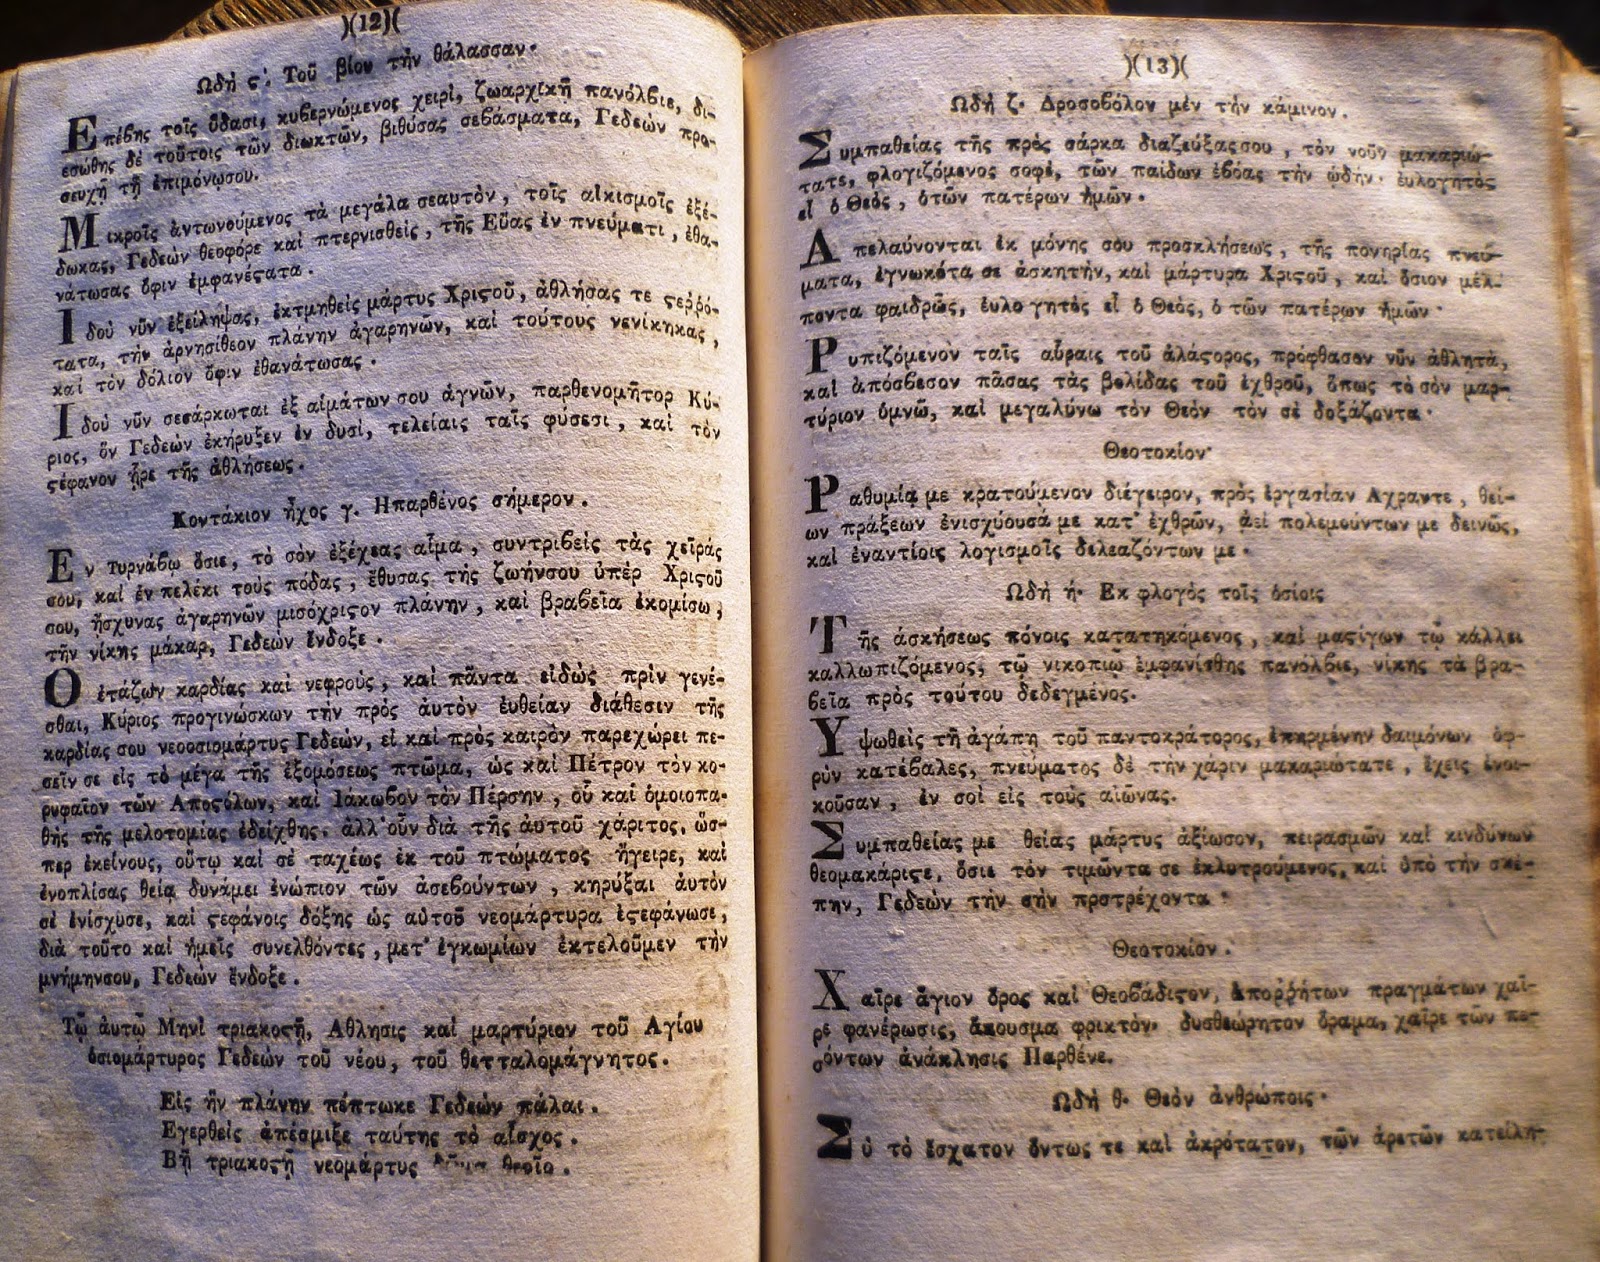 )(12)(
Ωδὴ ϛ΄. Τοῦ βίου τὴν θάλασσαν·
Επέβης τοῖς ὕδασι, κυβερνώμενος χειρὶ, ζωαρχικῇ πανόλβιε, δι-
εσώθης δὲ τούτοις τῶν διωκτῶν, βιθύσας σεβάσματα, Γεδεὼν προ-
σευχῇ τῇ ἐπιμόνωσου.
Μικροῖς ἀντωνούμενος τὰ μεγάλα σεαυτὸν, τοῖς αἰκισμοῖς ἐξέ-
δωκας, Γεδεὼν θεοφόρε καὶ πτερνισθεὶς, τῆς Εὔας ἐν πνεύματι, ἐθα-
νάτωσας ὄφιν ἐμφανέϛατα.
Ιδοὺ νῦν ἐξείληψας, ἐκτμηθεὶς μάρτυς Χριϛοῦ, ἀθλήσας τε ϛερρό-
τατα, τὴν ἀρνησίθεον πλάνην ἀγαρηνῶν, καὶ τούτους νενίκηκας,
καὶ τὸν δόλιον ὄφιν ἐθανάτωσας.
Ιδοὺ νῦν σεσάρκωται ἐξ αἱμάτων σου ἁγνῶν, παρθενομῆτορ Κύ-
ριος, ὃν Γεδεὼν ἐκήρυξεν ἐν δυσὶ, τελείαις ταῖς φύσεσι, καὶ τὸν
ϛέφανον ᾖρε τῆς ἀθλήσεως.
Κοντάκιον ἦχος γ. Ηπαρθένος σήμερον.
Εν Τυρνάβῳ ὅσιε, τὸ σὸν ἐξέχεας αἷμα, συντριβεὶς τὰς χεῖράς
σου, καὶ ἐν πελέκι τοὺς πόδας, ἔθυσας τῆς ζωήνσου ὑπὲρ Χριϛοῦ
σου, ᾔσχυνας ἀγαρηνῶν μισόχριϛον πλάνην, καὶ βραβεῖα ἐκομίσω,
τὴν νίκης μάκαρ, Γεδεὼν ἔνδοξε.
Ο ἐτάζων καρδίας καὶ νεφροὺς, καὶ πάντα εἰδὼς πρὶν γενέ-
σθαι, Κύριος προγινώσκων τὴν πρὸς ἀυτὸν ἐυθείαν διάθεσιν τῆς
καρδίας σου νεοοσιομάρτυς Γεδεὼν, εἰ καὶ πρὸς καιρὸν παρεχώρει πε-
σεῖν σε εἰς τὸ μέγα τῆς ἐξομόσεως πτῶμα, ὡς καὶ Πέτρον τὸν κο-
ρυφαῖον τῶν Αποϛόλων, καὶ Ιάκωβον τὸν Πέρσην, οὗ καὶ ὁμοιοπα-
θὴς τῆς μελοτομίας ἐδείχθης. ἀλλ' οὖν διὰ τῆς ἀυτοῦ χάριτος, ὥσ-
περ ἐκείνους, οὕτω καὶ σὲ ταχέως ἐκ τοῦ πτώματος ἤγειρε, καὶ
ἐνοπλίσας θείᾳ δυνάμει ἐνώπιον τῶν ἀσεβούντων, κηρύξαι ἀυτὸν
σὲ ἐνίσχυσε, καὶ ϛεφάνοις δόξης ὡς αὐτοῦ νεομάρτυρα ἐϛεφάνωσε,
διὰ τοῦτο καὶ ἡμεῖς συνελθόντες, μετ' ἐγκωμίων ἐκτελοῦμεν τὴν
μνήμηνσου, Γεδεὼν ἔνδοξε.
Τῷ ἀυτῷ Μηνὶ τριακοϛῇ, Αθλησις καὶ μαρτύριον τοῦ Αγίου
ὁσιομάρτυρος Γεδεὼν τοῦ νέου, τοῦ θετταλομάγνητος.
Εἰς ἣν πλάνην πέπτωκε Γεδεὼν πάλαι.
Εγερθεὶς ἀπέσμιξε ταύτης τὸ αἶσχος.
Βῆ τριακοϛῇ νεομάρτυς
)(13)(
Ωδὴ ζ. Δροσοβόλον μὲν τὴν κάμινον.
Συμπαθείας τῆς πρὸς σάρκα διαζεύξας σου, τὸν νοῦν μακαριώ-
τατε, φλογιζόμενος σοφὲ, τῶν παίδων ἐβόας τὴν ᾠδὴν· ἐυλογητὸς
εἶ ὁ Θεὸς, ὁτῶν πατέρων ἡμῶν.
Απελαύνονται ἐκ μόνης σου προσκλήσεως, τῆς πονηρίας πνεύ-
ματα, ἐγνωκότα σε ἀσκητὴν, καὶ μάρτυρα Χριϛοῦ, καὶ ὅσιον μέλ-
ποντα φαιδρῶς, ἐυλογητὸς εἶ ὁ Θεὸς, ὁ τῶν πατέρων ἡμῶν·
Ρυπιζόμενον ταῖς αὔραις τοῦ ἀλάϛορος, πρόφθασον νῦν ἀθλητὰ,
καὶ ἀπόσβεσον πᾶσας τὰς βολίδας τοῦ ἐχθροῦ, ὅπως τὸ σὸν μαρ-
τύριον ὑμνῶ, καὶ μεγαλύνω τὸν Θεὸν τὸν σὲ δοξάζοντα·
Θεοτοκίον·
Ραθυμίᾳ με κρατούμενον διέγειρον, πρὸς ἐργασίαν Αχραντε, θεί-
ων πράξεων ἐνισχύουσά με κατ' ἐχθρῶν, ἀεὶ πολεμούντων με δεινῶς,
καὶ ἐναντίοις λογισμοῖς δελεαζόντων με.
Ωδὴ ή. Εκ φλογὸς τοῖς ὁσίοις
Τῆς ἀσκήσεως πόνοις κατατηκόμενος, καὶ μαϛίγων τῷ κάλλει
καλλωπιζόμενος, τῷ νικοπιῷ ἐμφανίσθης πανόλβιε, νίκης τὰ βρα-
βεῖα πρὸς τούτου δεδεγμένος.
Υψωθεὶς τῇ ἀγάπῃ τοῦ παντοκράτορος, ἐπηρμένην δαιμόνων ὀφ-
ρὺν κατέβαλες, πνεύματος δὲ τὴν χάριν μακαριώτατε, ἔχεις ἐνοι-
κοῦσαν, ἐν σοὶ εἰς τοὺς αἰῶνας.
Συμπαθείας με θείας μάρτυς ἀξίωσον, πειρασμῶν καὶ κινδύνων
θεομακάριϛε, ὅσιε τὸν τιμῶντα σε ἐκλυτρούμενος, καὶ ὑπὸ τὴν σκέ-
πην, Γεδεὼν τὴν σὴν πρστρέχοντα·
Θεοτοκίον.
Χαῖρε ἅγιον ὄρος καὶ Θεοβάδιϛον, ἀποῤῥήτων πραγμάτων χαῖ-
ρε φανέρωσις, ἄκουσμα φρικτὸν· δυσθεώρητον ὅραμα, χαῖρε τῶν πε-
σόντων ἀνάκλησις Παρθένε.
Ωδὴ θ. Θεὸν ἀνθρώποις·
Σὺ τὸ ἔσχατον ὄντως τε καὶ ἀκρότατον, τῶν ἀρετῶν κατείλη-